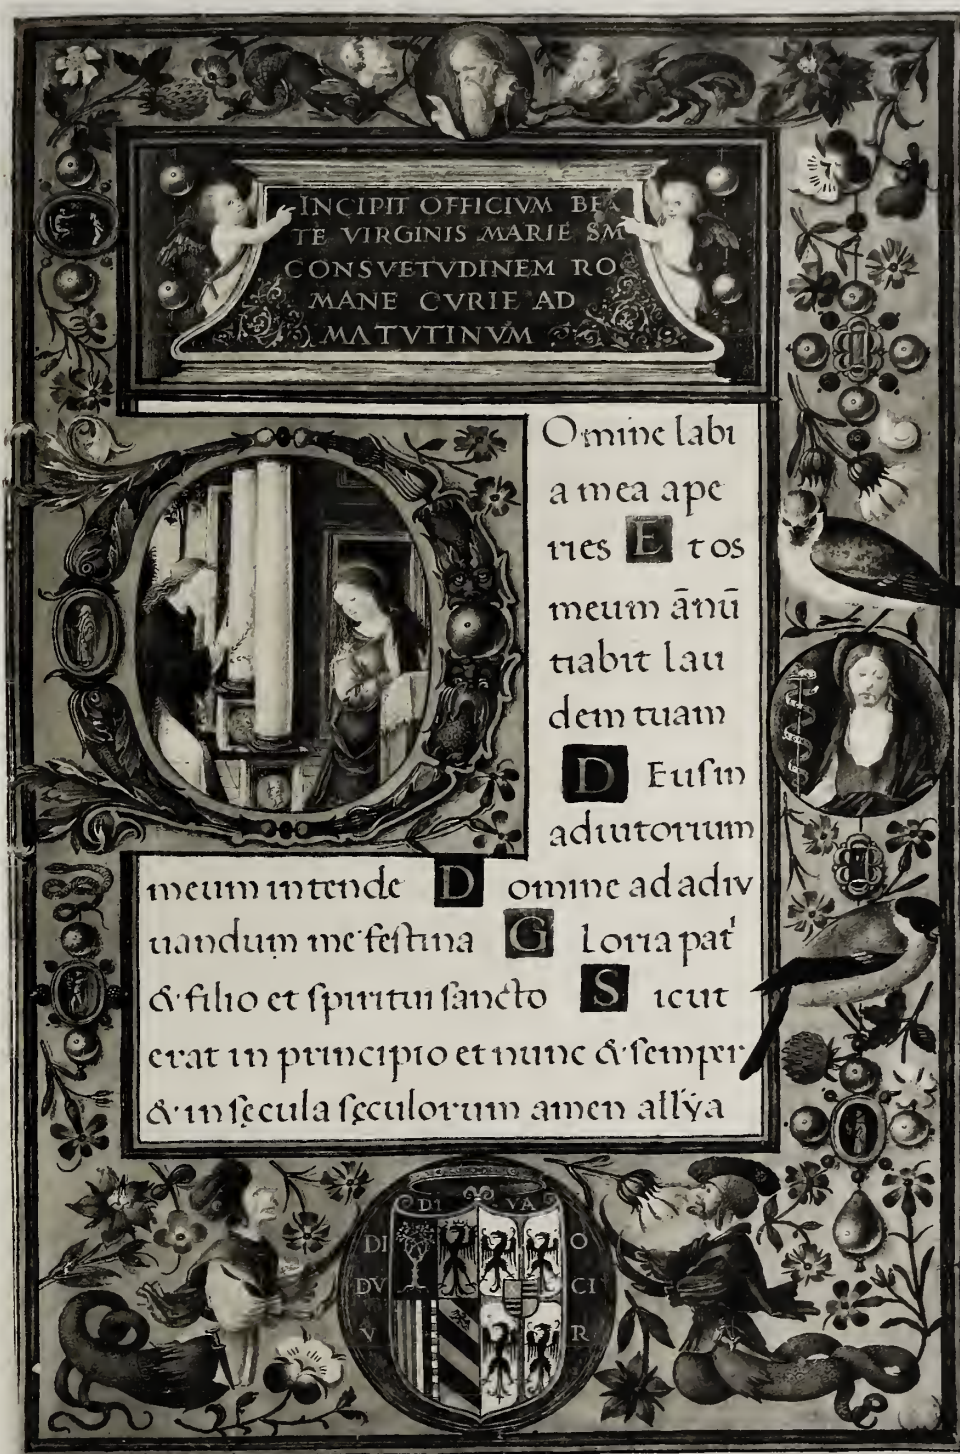 INCIPIT OFFICIVM BEA
TE VIRGINIS MARIE SM
CONSVETVDINEM RO
MANE CVRIE AD
MATVTINVM
Omine labi
a mea ape
ries Et os
meum ānū
tiabit lau
dem tuam
D Eus in
adiutorium
meum intende Domine ad adiv
uandum me festina Gloria pat
& filio et spiritui sancto Sicut
erat in principio et nunc & semper
& in sęcula sęculorum amen all'ya
DI VA
DI O
DV CI
V R